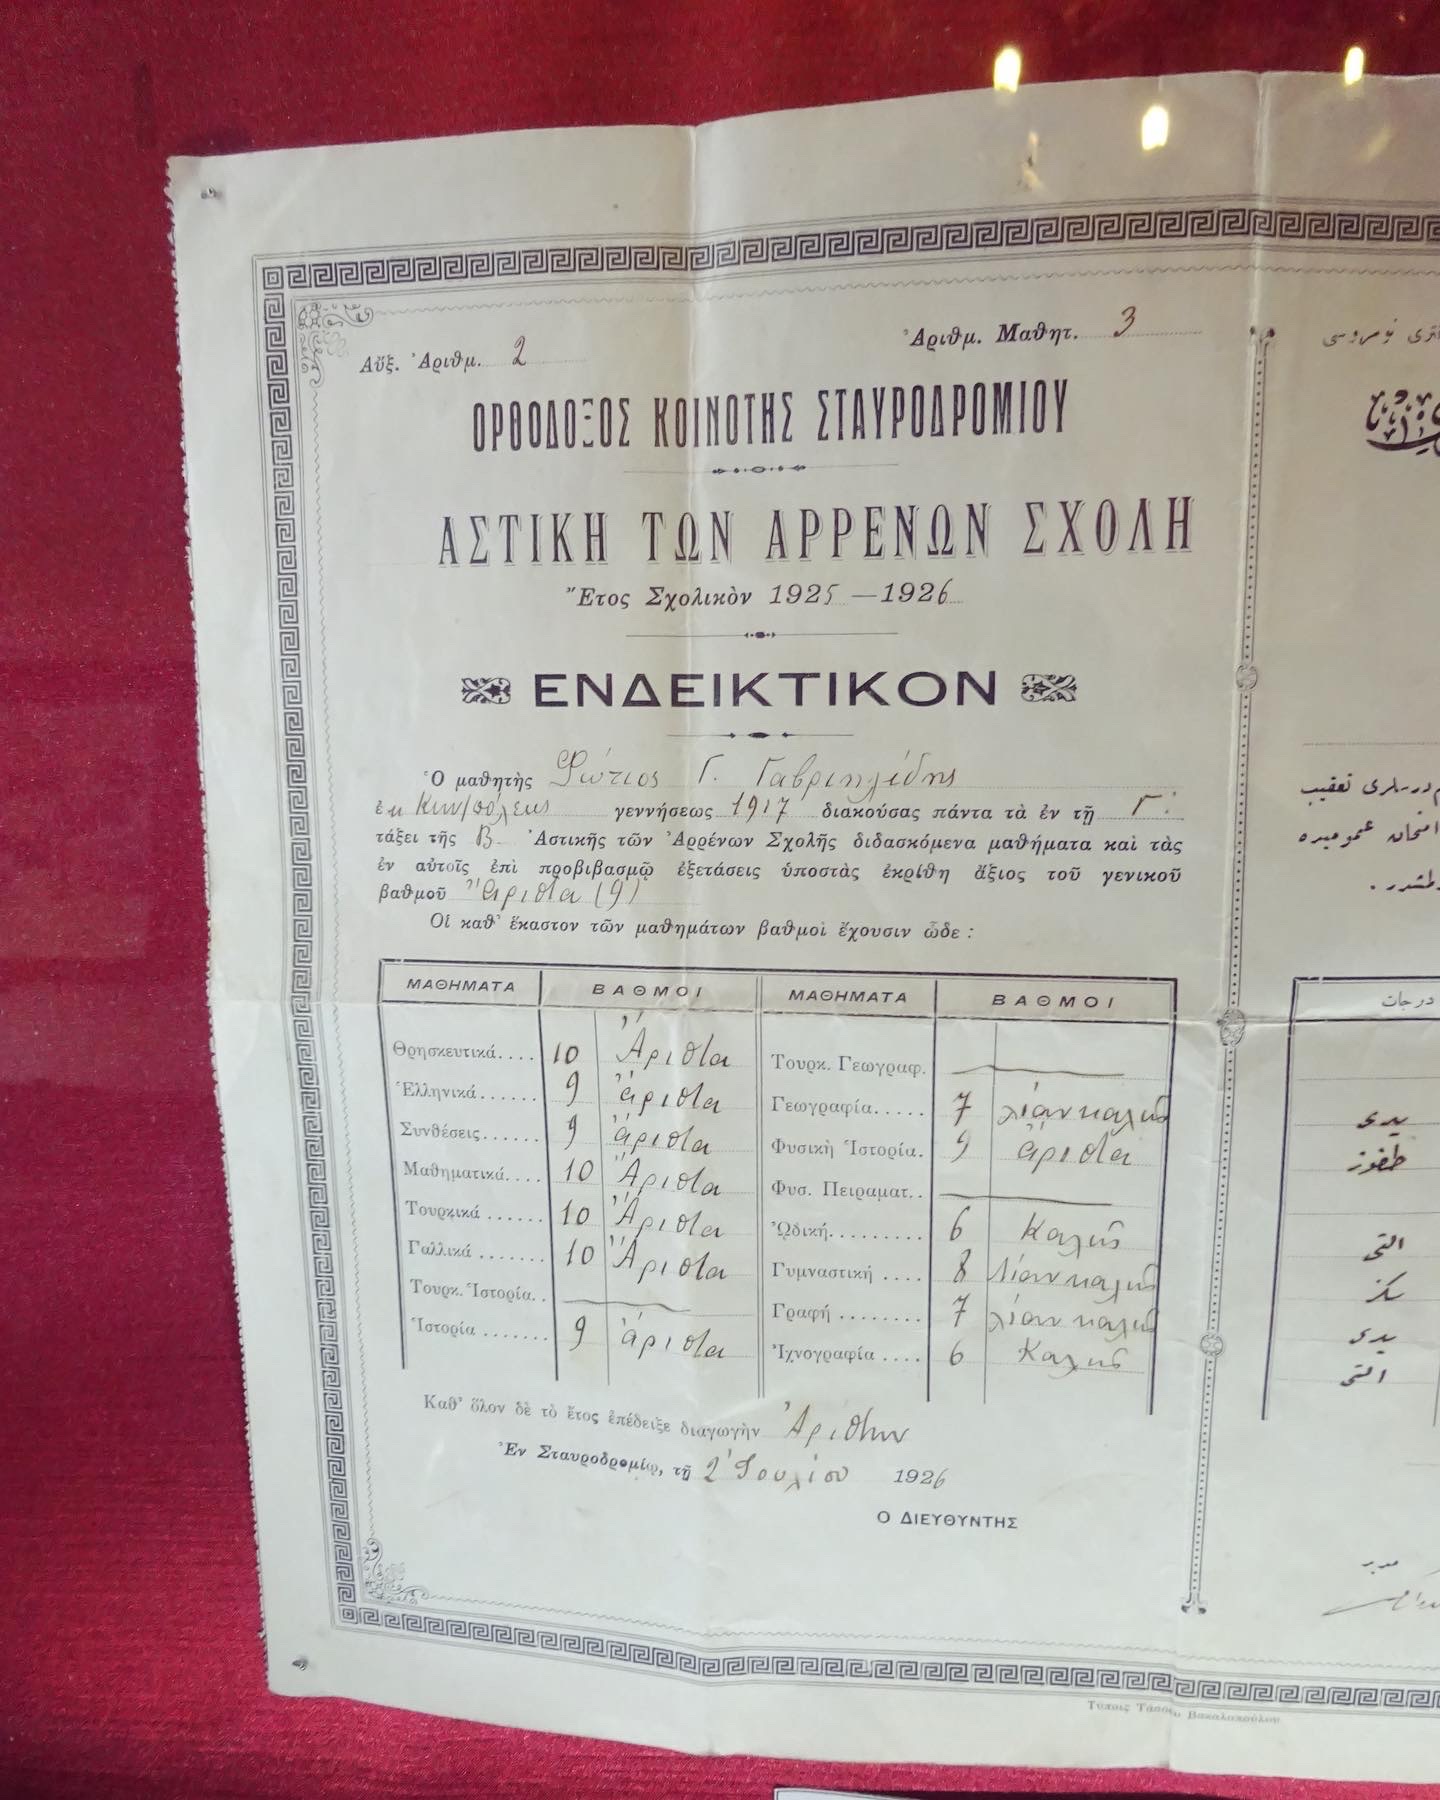 Αὔξ. Ἀριθμ. 2
Ἀριθμ. Μαθητ. 3
ΟΡΘΟΔΟΞΟΣ ΚΟΙΝΟΤΗΣ ΣΤΑΥΡΟΔΡΟΜΙΟΥ
ΑΣΤΙΚΗ ΤΩΝ ΑΡΡΕΝΩΝ ΣΧΟΛΗ
Ἔτος Σχολικὸν 1925 — 1926
ΕΝΔΕΙΚΤΙΚΟΝ
Ὁ μαθητὴς Φώτιος Γ. Γαβριηλίδης
ἐκ Κων/πόλεως γεννήσεως 1917 διακούσας πάντα τὰ ἐν τῇ Γ΄
τάξει τῆς Β Ἀστικῆς τῶν Ἀρρένων Σχολῆς διδασκόμενα μαθήματα καὶ τὰς
ἐν αὐτοῖς ἐπὶ προβιβασμῷ ἐξετάσεις ὑποστὰς ἐκρίθη ἄξιος τοῦ γενικοῦ
βαθμοῦ Ἄριστα (9)
Οἱ καθ' ἕκαστον τῶν μαθημάτων βαθμοὶ ἔχουσιν ὧδε :
ΜΑΘΗΜΑΤΑ ΒΑΘΜΟΙ
Θρησκευτικά.... 10 Ἄριστα
Ἑλληνικά...... 9 ἄριστα
Συνθέσεις...... 9 ἄριστα
Μαθηματικά.... 10 Ἄριστα
Τουρκικά...... 10 Ἄριστα
Γαλλικά....... 10 Ἄριστα
Τουρκ. Ἱστορία..
Ἱστορία....... 9 ἄριστα
ΜΑΘΗΜΑΤΑ ΒΑΘΜΟΙ
Τουρκ. Γεωγραφ.
Γεωγραφία..... 7 λίαν καλῶς
Φυσικὴ Ἱστορία. 9 ἄριστα
Φυσ. Πειραματ..
ᾨδική......... 6 Καλῶς
Γυμναστική.... 8 Λίαν καλῶς
Γραφή........ 7 λίαν καλῶς
Ἰχνογραφία.... 6 Καλῶς
Καθ' ὅλον δὲ τὸ ἔτος ἐπέδειξε διαγωγὴν Ἀρίστην
Ἐν Σταυροδρομίῳ, τῇ 2 Ἰουλίου 1926
Ο ΔΙΕΥΘΥΝΤΗΣ
Τύποις Τάσου Βακαλοπούλου
نومروسى
درسلرى تعقيب
امتحان عموميده
درجات
يدى
طقوز
التى
سكز
يدى
التى
مدير